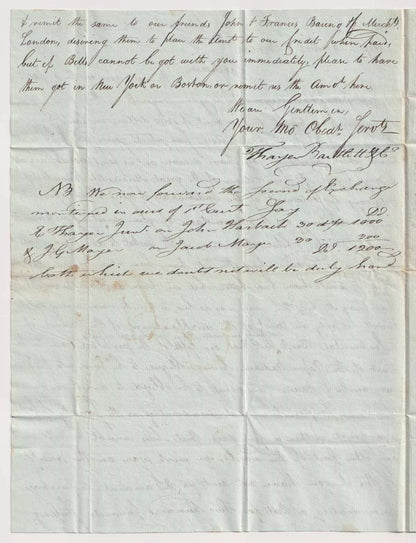 & remit the same to our friends John & Francis Baring & Co Merchts,
London, desiring them to place the amt to our credit when paid,
but if Bills cannot be got with you immediately, please to have
them got in New York or Boston, or remit us the Amot here.
We are Gentlemen,
Your Mo Obedt Servts
Thayer Bartlett & Co
NB We now forward the Second of Exchange
mentioned in ours of 1st Curnt
Thayer Junr. on John Warback 30 d 1000
& J. G. Mayer on Jacob Mayer 30 200
D$ 1200
both which we doubt not will be duly hond